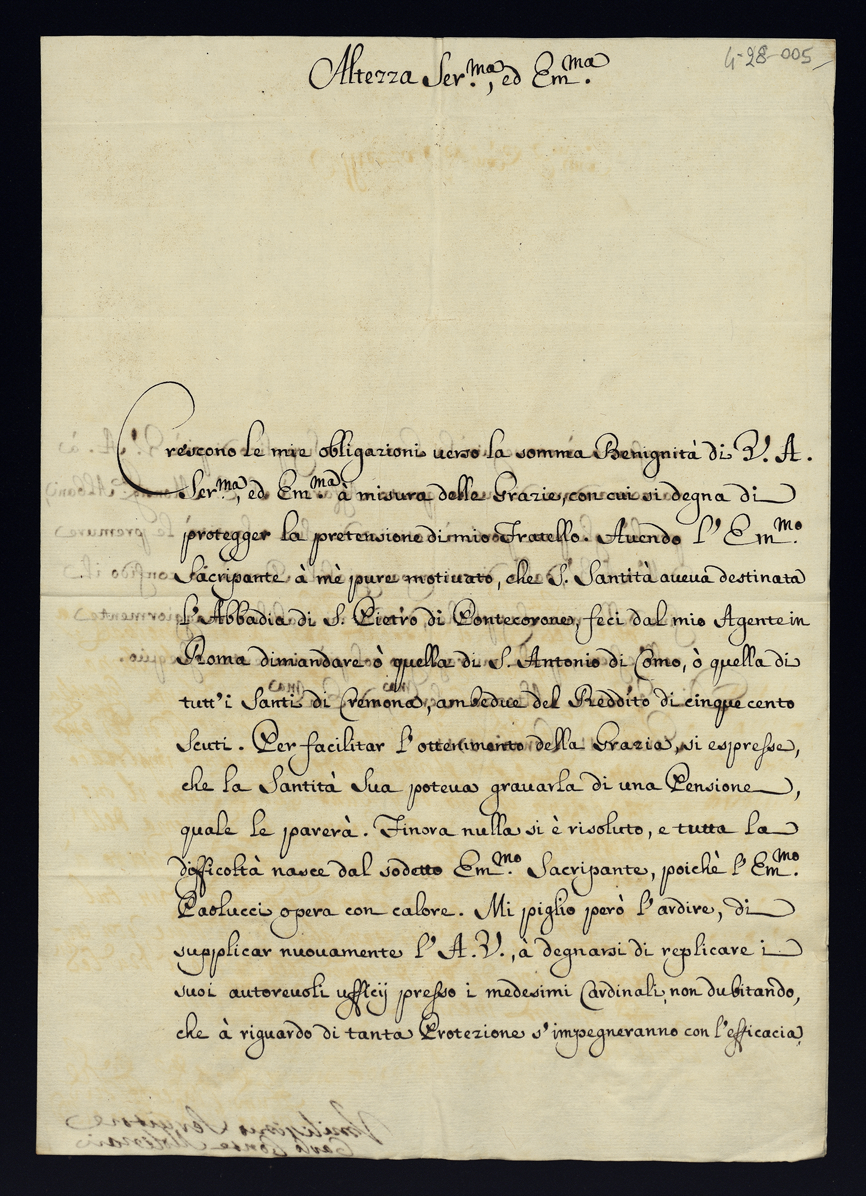 4-28-005
Altezza Ser.ma, ed Em.ma
Crescono le mie obligazioni verso la somma Benignità di V. A.
Ser.ma, ed Em.ma à misura delle Grazie, con cui si degna di
protegger la pretensione di mio Fratello. Auendo l'Em.mo
Sacripante à mè pure motiuato, che S.a Santità aueua destinata
l'Abbadia di S. Pietro di Pontecorone, feci dal mio Agente in
Roma dimandare ò quella di S. Antonio di Como, ò quella di
tutt'i Santi di Cremona, ambedue del Reddito di cinque cento
Scuti. Per facilitar l'ottenimento della Grazia, si espresse,
che la Santità Sua poteua grauarla di una Pensione,
quale le parerà. Finora nulla si è risoluto, e tutta la
difficoltà nasce dal sodetto Em.mo Sacripante, poichè l'Em.mo
Paolucci opera con calore. Mi piglio però l'ardire, di
supplicar nuouamente l'A.V., à degnarsi di replicare i
suoi autoreuoli ufficij presso i medesimi Cardinali, non dubitando,
che à riguardo di tanta Protezione s'impegneranno con l'efficacia,